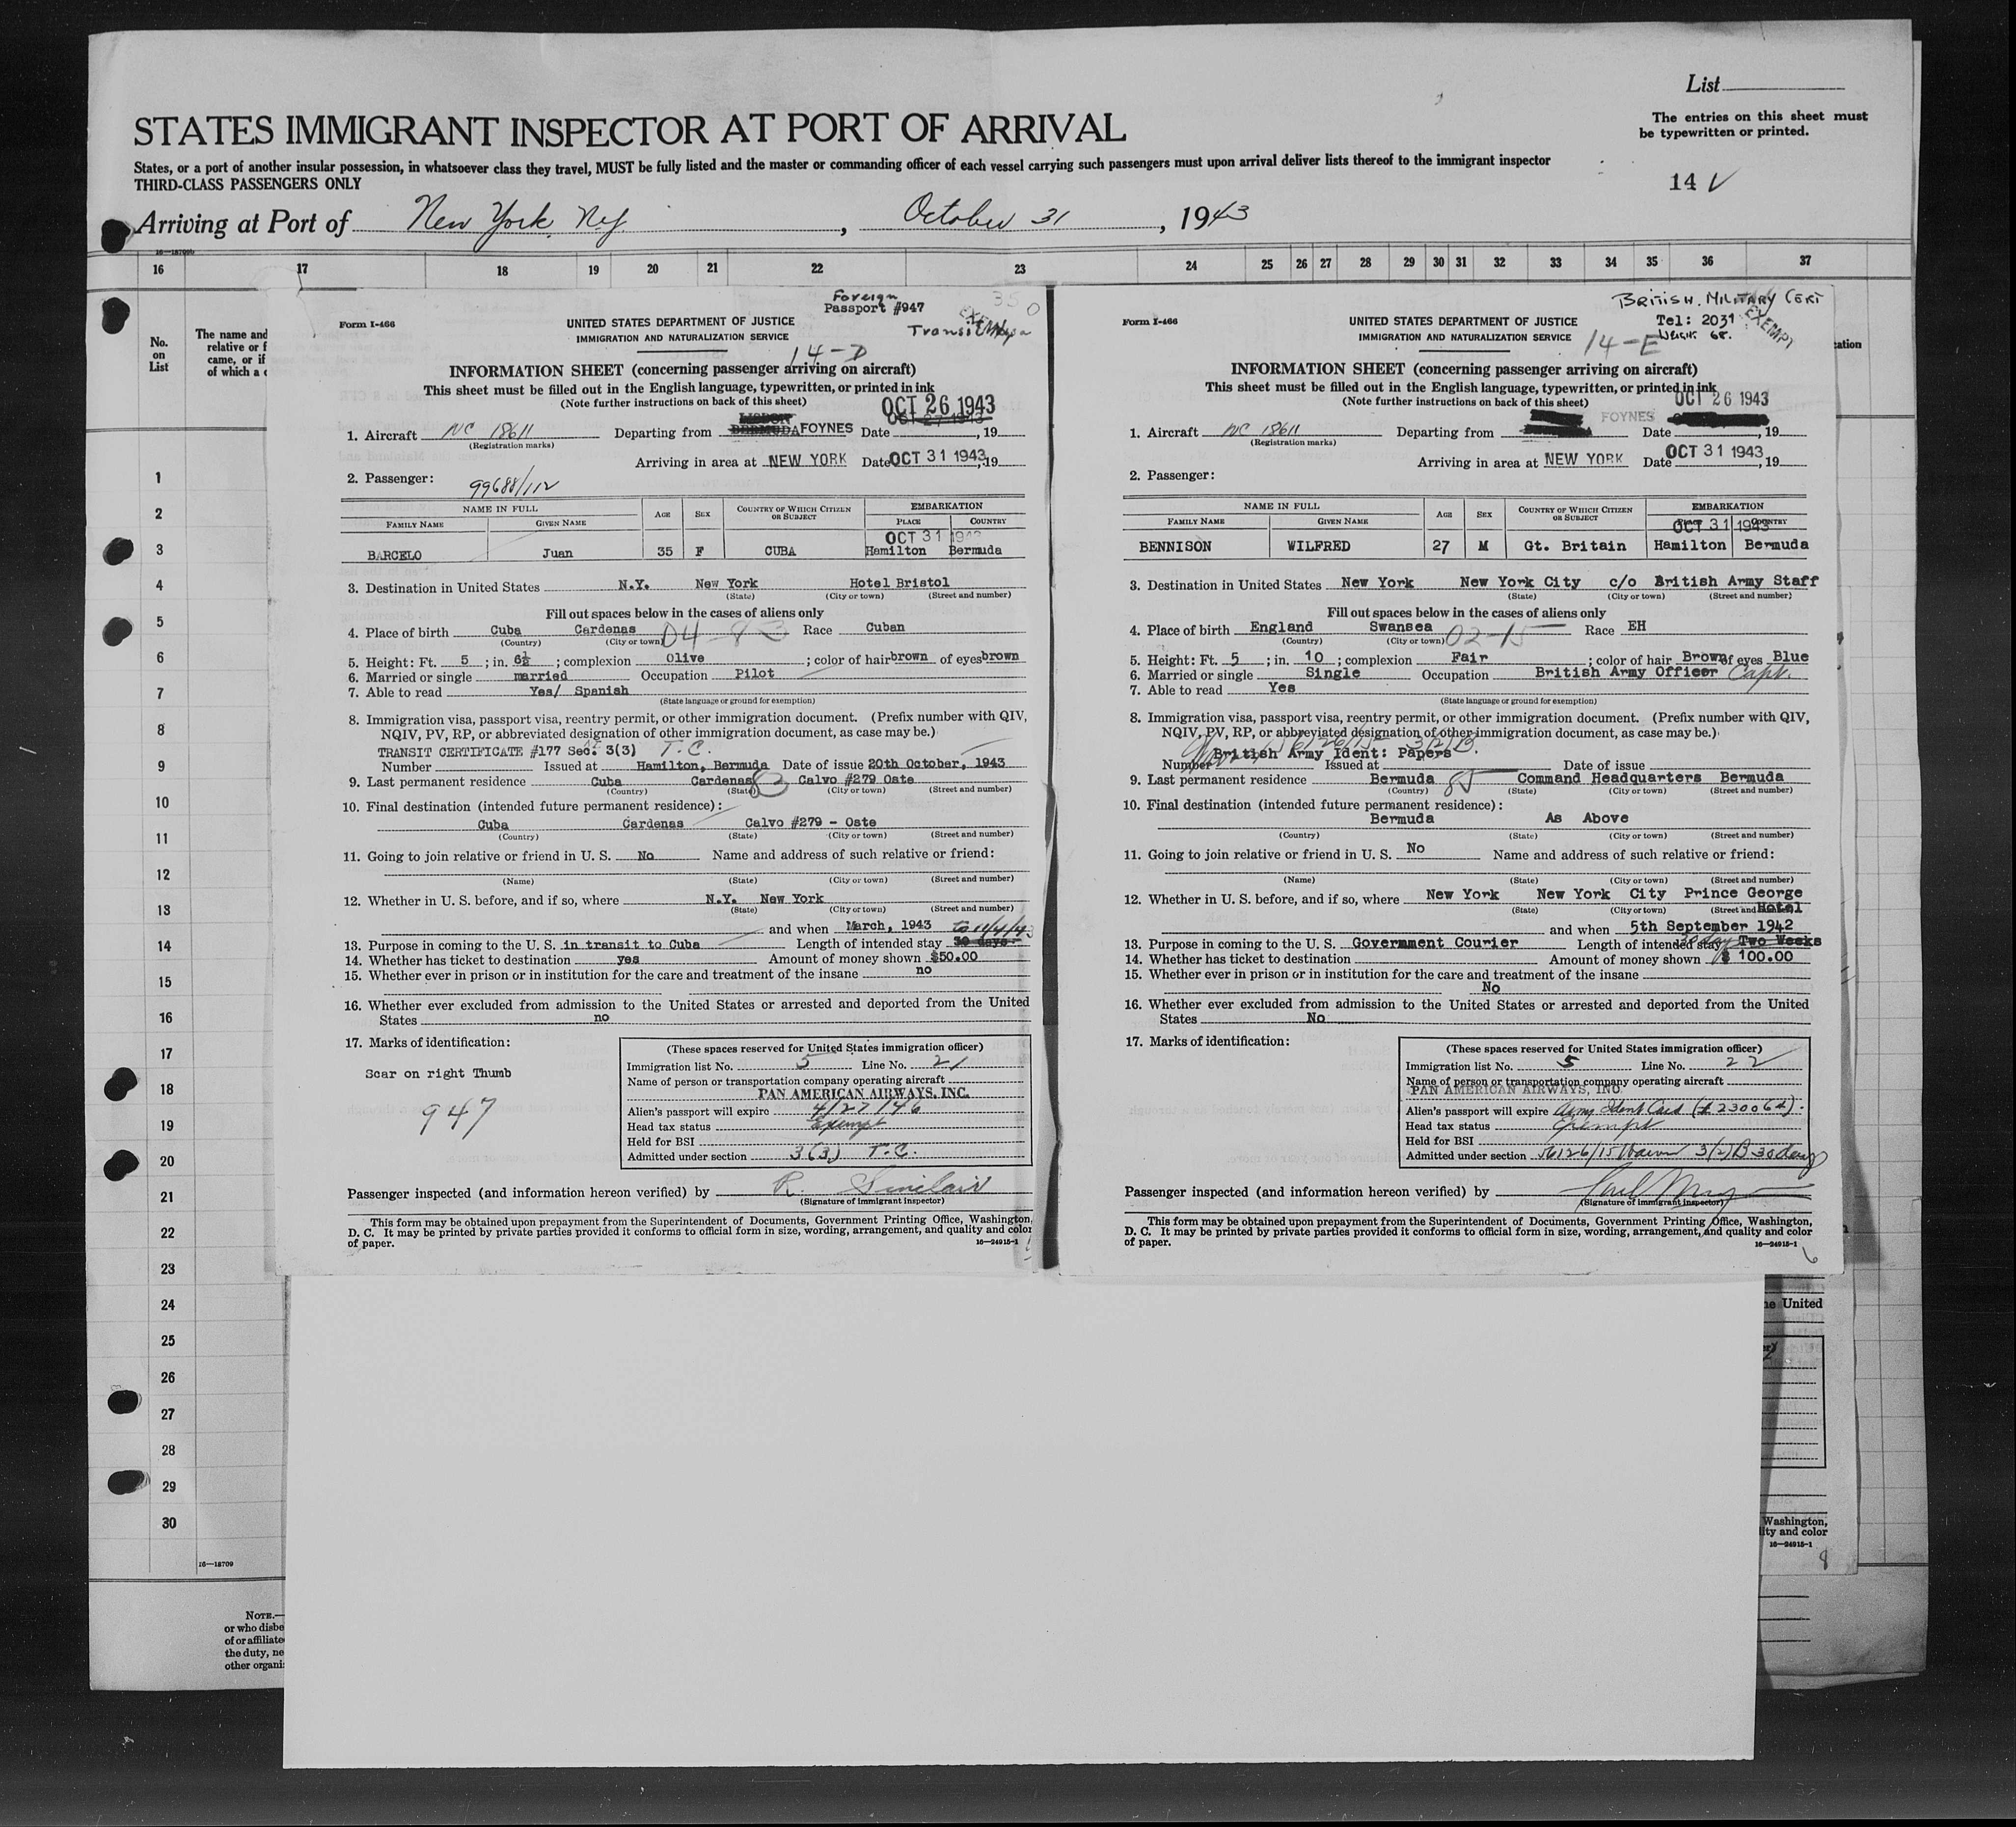 List
The entries on this sheet must
be typewritten or printed.
STATES IMMIGRANT INSPECTOR AT PORT OF ARRIVAL
States, or a port of another insular possession, in whatsoever class they travel, MUST be fully listed and the master or commanding officer of each vessel carrying such passengers must upon arrival deliver lists thereof to the immigrant inspector
THIRD-CLASS PASSENGERS ONLY
14 V
Arriving at Port of New York, N.Y. , October 31 , 1943
16 17 18 19 20 21 22 23 24 25 26 27 28 29 30 31 32 33 34 35 36 37
No.
on
List
The name and
relative or f
came, or if
of which a c
1
2
3
4
5
6
7
8
9
10
11
12
13
14
15
16
17
18
19
20
21
22
23
24
25
26
27
28
29
30
16—18709
NOTE.—
or who disbe
of or affiliate
the duty, ne
other organi
Foreign
Passport #947
Form I-466
UNITED STATES DEPARTMENT OF JUSTICE
IMMIGRATION AND NATURALIZATION SERVICE
EXEMPT
Transit
14-D
INFORMATION SHEET (concerning passenger arriving on aircraft)
This sheet must be filled out in the English language, typewritten, or printed in ink
(Note further instructions on back of this sheet)
OCT 26 1943
OCT 27 1943
LISBON
1. Aircraft NC 18611 Departing from BERMUDA FOYNES Date , 19
(Registration marks)
Arriving in area at NEW YORK Date OCT 31 1943, 19
2. Passenger: 99688/112
NAME IN FULL AGE SEX COUNTRY OF WHICH CITIZEN OR SUBJECT EMBARKATION
FAMILY NAME GIVEN NAME PLACE COUNTRY
OCT 31 1943
BARCELO Juan 35 F CUBA Hamilton Bermuda
3. Destination in United States N.Y. New York Hotel Bristol
(State) (City or town) (Street and number)
Fill out spaces below in the cases of aliens only
4. Place of birth Cuba Cardenas 04-83 Race Cuban
(Country) (City or town)
5. Height: Ft. 5 ; in. 6½ ; complexion Olive ; color of hair brown of eyes brown
6. Married or single married Occupation Pilot
7. Able to read Yes/ Spanish
(State language or ground for exemption)
8. Immigration visa, passport visa, reentry permit, or other immigration document. (Prefix number with QIV,
NQIV, PV, RP, or abbreviated designation of other immigration document, as case may be.)
TRANSIT CERTIFICATE #177 Sec. 3(3) T.C.
Number Issued at Hamilton, Bermuda Date of issue 20th October, 1943
9. Last permanent residence Cuba Cardenas Calvo #279 Oste
(Country) (State) (City or town) (Street and number)
10. Final destination (intended future permanent residence):
Cuba Cardenas Calvo #279 - Oste
(Country) (State) (City or town) (Street and number)
11. Going to join relative or friend in U. S. No Name and address of such relative or friend:
(Name) (State) (City or town) (Street and number)
12. Whether in U. S. before, and if so, where N.Y. New York
(State) (City or town) (Street and number)
and when March, 1943 to 11/4/43
13. Purpose in coming to the U. S. in transit to Cuba Length of intended stay 30 days
14. Whether has ticket to destination yes Amount of money shown $50.00
15. Whether ever in prison or in institution for the care and treatment of the insane no
16. Whether ever excluded from admission to the United States or arrested and deported from the United
States no
17. Marks of identification:
Scar on right Thumb
947
(These spaces reserved for United States immigration officer)
Immigration list No. 5 Line No. 21
Name of person or transportation company operating aircraft
PAN AMERICAN AIRWAYS, INC.
Alien's passport will expire 4/27/46
Head tax status Exempt
Held for BSI
Admitted under section 3(3) T.C.
Passenger inspected (and information hereon verified) by R. Sinclair
(Signature of immigrant inspector)
This form may be obtained upon prepayment from the Superintendent of Documents, Government Printing Office, Washington,
D. C. It may be printed by private parties provided it conforms to official form in size, wording, arrangement, and quality and color
of paper. 16—24915-1
BRITISH. MILITARY CERT
Form I-466
UNITED STATES DEPARTMENT OF JUSTICE
IMMIGRATION AND NATURALIZATION SERVICE
Tel: 2031
EXEMPT
14-E
INFORMATION SHEET (concerning passenger arriving on aircraft)
This sheet must be filled out in the English language, typewritten, or printed in ink
(Note further instructions on back of this sheet)
OCT 26 1943
1. Aircraft NC 18611 Departing from FOYNES Date , 19
(Registration marks)
Arriving in area at NEW YORK Date OCT 31 1943, 19
2. Passenger:
NAME IN FULL AGE SEX COUNTRY OF WHICH CITIZEN OR SUBJECT EMBARKATION
FAMILY NAME GIVEN NAME PLACE COUNTRY
OCT 31 1943
BENNISON WILFRED 27 M Gt. Britain Hamilton Bermuda
3. Destination in United States New York New York City c/o British Army Staff
(State) (City or town) (Street and number)
Fill out spaces below in the cases of aliens only
4. Place of birth England Swansea 02-15 Race EH
(Country) (City or town)
5. Height: Ft. 5 ; in. 10 ; complexion Fair ; color of hair Brown of eyes Blue
6. Married or single Single Occupation British Army Officer Capt.
7. Able to read Yes
(State language or ground for exemption)
8. Immigration visa, passport visa, reentry permit, or other immigration document. (Prefix number with QIV,
NQIV, PV, RP, or abbreviated designation of other immigration document, as case may be.)
British Army Ident: Papers
Number Issued at Date of issue
9. Last permanent residence Bermuda 85 Command Headquarters Bermuda
(Country) (State) (City or town) (Street and number)
10. Final destination (intended future permanent residence):
Bermuda As Above
(Country) (State) (City or town) (Street and number)
11. Going to join relative or friend in U. S. No Name and address of such relative or friend:
(Name) (State) (City or town) (Street and number)
12. Whether in U. S. before, and if so, where New York New York City Prince George
(State) (City or town) (Street and number) Hotel
and when 5th September 1942
13. Purpose in coming to the U. S. Government Courier Length of intended stay Two Weeks
14. Whether has ticket to destination Amount of money shown $ 100.00
15. Whether ever in prison or in institution for the care and treatment of the insane
No
16. Whether ever excluded from admission to the United States or arrested and deported from the United
States No
17. Marks of identification:
(These spaces reserved for United States immigration officer)
Immigration list No. 5 Line No. 22
Name of person or transportation company operating aircraft
PAN AMERICAN AIRWAYS, INC
Alien's passport will expire Army Ident Card (#230064).
Head tax status Exempt
Held for BSI
Admitted under section 56126/15 Waiver 3(2)B 30 days
Passenger inspected (and information hereon verified) by
(Signature of immigrant inspector)
This form may be obtained upon prepayment from the Superintendent of Documents, Government Printing Office, Washington,
D. C. It may be printed by private parties provided it conforms to official form in size, wording, arrangement, and quality and color
of paper. 16—24915-1
6
ation
he United
Washington,
lity and color
16—24915-1
8